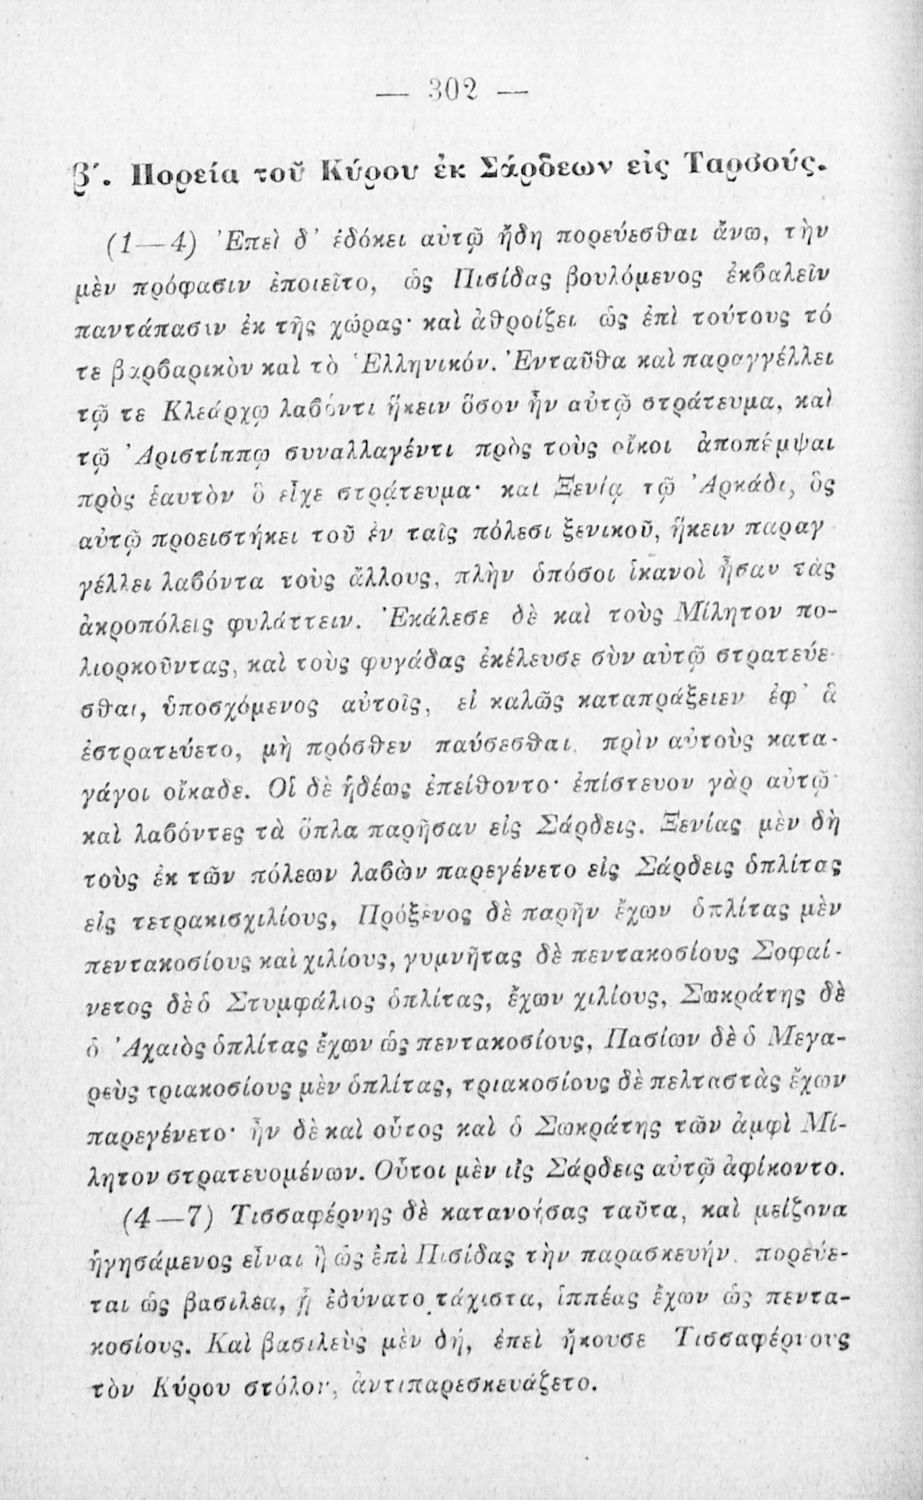 — 302 —
β΄. Πορεία τοῦ Κύρου ἐκ Σάρδεων εἰς Ταρσούς.
(1—4) Ἐπεὶ δ’ ἐδόκει αὐτῷ ἤδη πορεύεσθαι ἄνω, τὴν
μὲν πρόφασιν ἐποιεῖτο, ὡς Πισίδας βουλόμενος ἐκβαλεῖν
παντάπασιν ἐκ τῆς χώρας· καὶ ἀθροίζει ὡς ἐπὶ τούτους τό
τε βαρβαρικὸν καὶ τὸ Ἑλληνικόν. Ἐνταῦθα καὶ παραγγέλλει
τῷ τε Κλεάρχῳ λαβόντι ἥκειν ὅσον ἦν αὐτῷ στράτευμα, καὶ
τῷ Ἀριστίππῳ συναλλαγέντι πρὸς τοὺς οἴκοι ἀποπέμψαι
πρὸς ἑαυτὸν ὃ εἶχε στράτευμα· καὶ Ξενίᾳ τῷ Ἀρκάδι, ὃς
αὐτῷ προειστήκει τοῦ ἐν ταῖς πόλεσι ξενικοῦ, ἥκειν παραγ
γέλλει λαβόντα τοὺς ἄλλους, πλὴν ὁπόσοι ἱκανοὶ ἦσαν τὰς
ἀκροπόλεις φυλάττειν. Ἐκάλεσε δὲ καὶ τοὺς Μίλητον πο-
λιορκοῦντας, καὶ τοὺς φυγάδας ἐκέλευσε σὺν αὐτῷ στρατεύε-
σθαι, ὑποσχόμενος αὐτοῖς, εἰ καλῶς καταπράξειεν ἐφ’ ἃ
ἐστρατεύετο, μὴ πρόσθεν παύσεσθαι, πρὶν αὐτοὺς κατα-
γάγοι οἴκαδε. Οἱ δὲ ἡδέως ἐπείθοντο· ἐπίστευον γὰρ αὐτῷ·
καὶ λαβόντες τὰ ὅπλα παρῆσαν εἰς Σάρδεις. Ξενίας μὲν δὴ
τοὺς ἐκ τῶν πόλεων λαβὼν παρεγένετο εἰς Σάρδεις ὁπλίτας
εἰς τετρακισχιλίους, Πρόξενος δὲ παρῆν ἔχων ὁπλίτας μὲν
πεντακοσίους καὶ χιλίους, γυμνῆτας δὲ πεντακοσίους Σοφαί-
νετος δὲ ὁ Στυμφάλιος ὁπλίτας, ἔχων χιλίους, Σωκράτης δὲ
ὁ Ἀχαιὸς ὁπλίτας ἔχων ὡς πεντακοσίους, Πασίων δὲ ὁ Μεγα-
ρεὺς τριακοσίους μὲν ὁπλίτας, τριακοσίους δὲ πελταστὰς ἔχων
παρεγένετο· ἦν δὲ καὶ οὗτος καὶ ὁ Σωκράτης τῶν ἀμφὶ Μί-
λητον στρατευομένων. Οὗτοι μὲν εἰς Σάρδεις αὐτῷ ἀφίκοντο.
(4—7) Τισσαφέρνης δὲ κατανοήσας ταῦτα, καὶ μείζονα
ἡγησάμενος εἶναι ἢ ὡς ἐπὶ Πισίδας τὴν παρασκευήν, πορεύε-
ται ὡς βασιλέα, ᾗ ἐδύνατο τάχιστα, ἱππέας ἔχων ὡς πεντα-
κοσίους. Καὶ βασιλεὺς μὲν δή, ἐπεὶ ἤκουσε Τισσαφέρνους
τὸν Κύρου στόλον, ἀντιπαρεσκευάζετο.